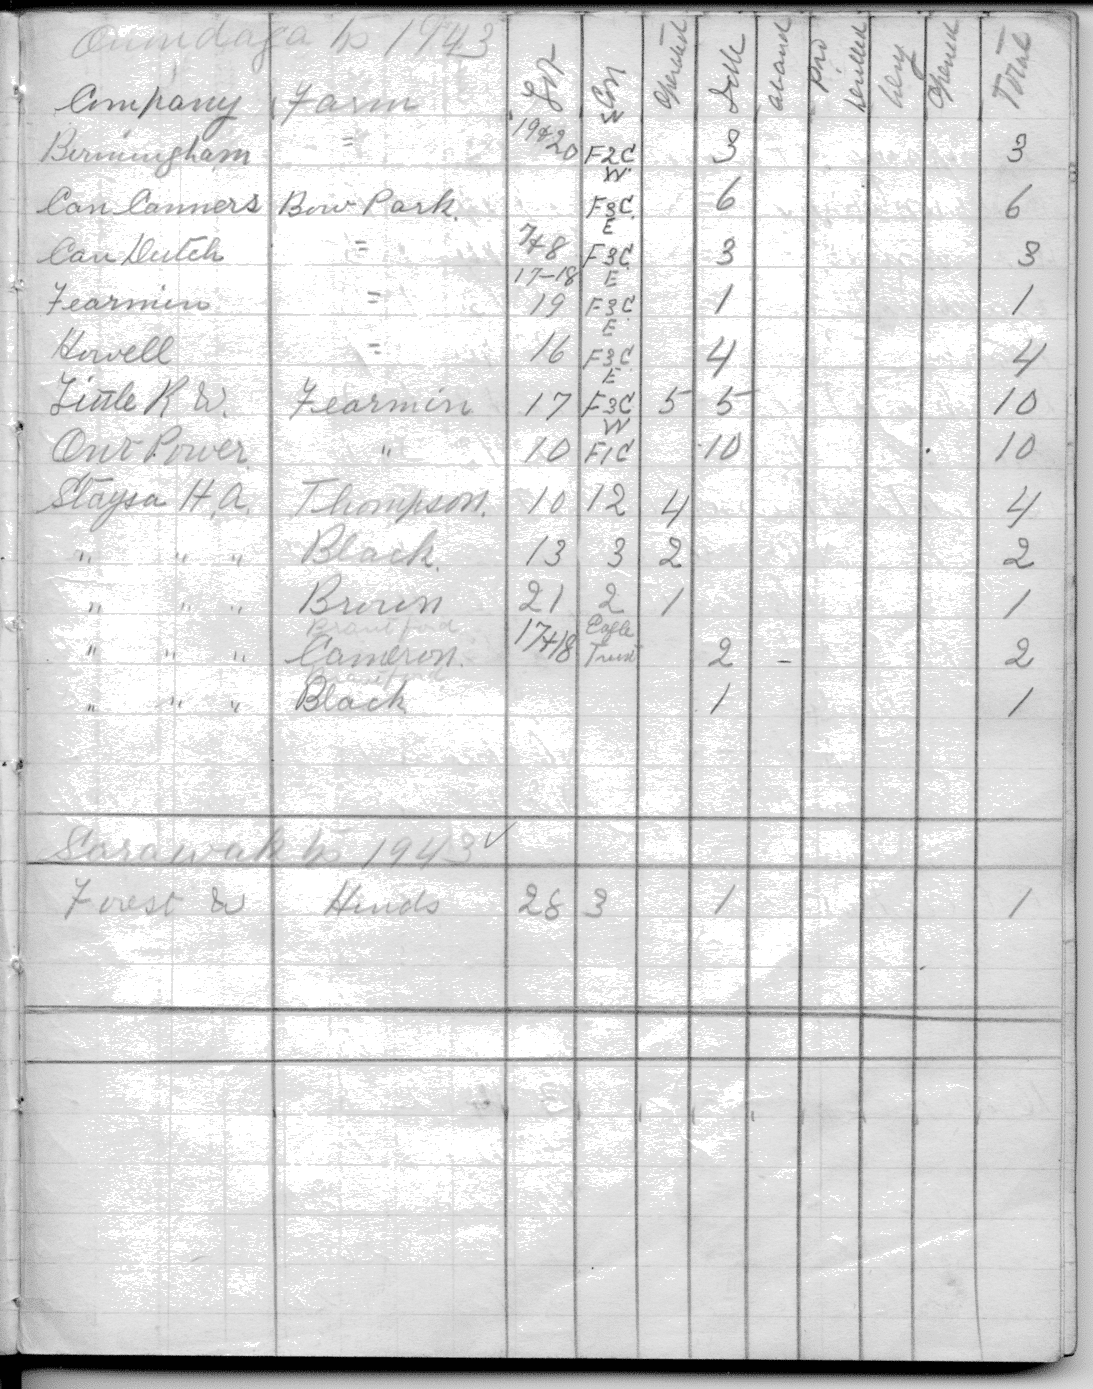 Onondaga to 1943
Company Farm Lot Con Operated Idle Aband Drilled Being Opened Total
Birmingham = 19+20 W F2C 3 3
Can Canners Bow Park. W F3C 6 6
Can Dutch = 7+8 E F3C 3 3
Fearmin = 17-18 19 E F3C 1 1
Howell = 16 E F3C 4 4
Little R W. Fearmin 17 E F3C 5 5 10
Ont Power " 10 W F1C 10 10
Staysa H.A. Thompson. 10 12 4 4
" " " Black. 13 3 2 2
" " " Brown 21 2 1 1
" " " Brantford Cameron. 17+18 Eagle Trust 2 - 2
" " " Brantford Black 1 1
Sarawak to 1943 ✓
Forest W Hinds 28 3 1 1